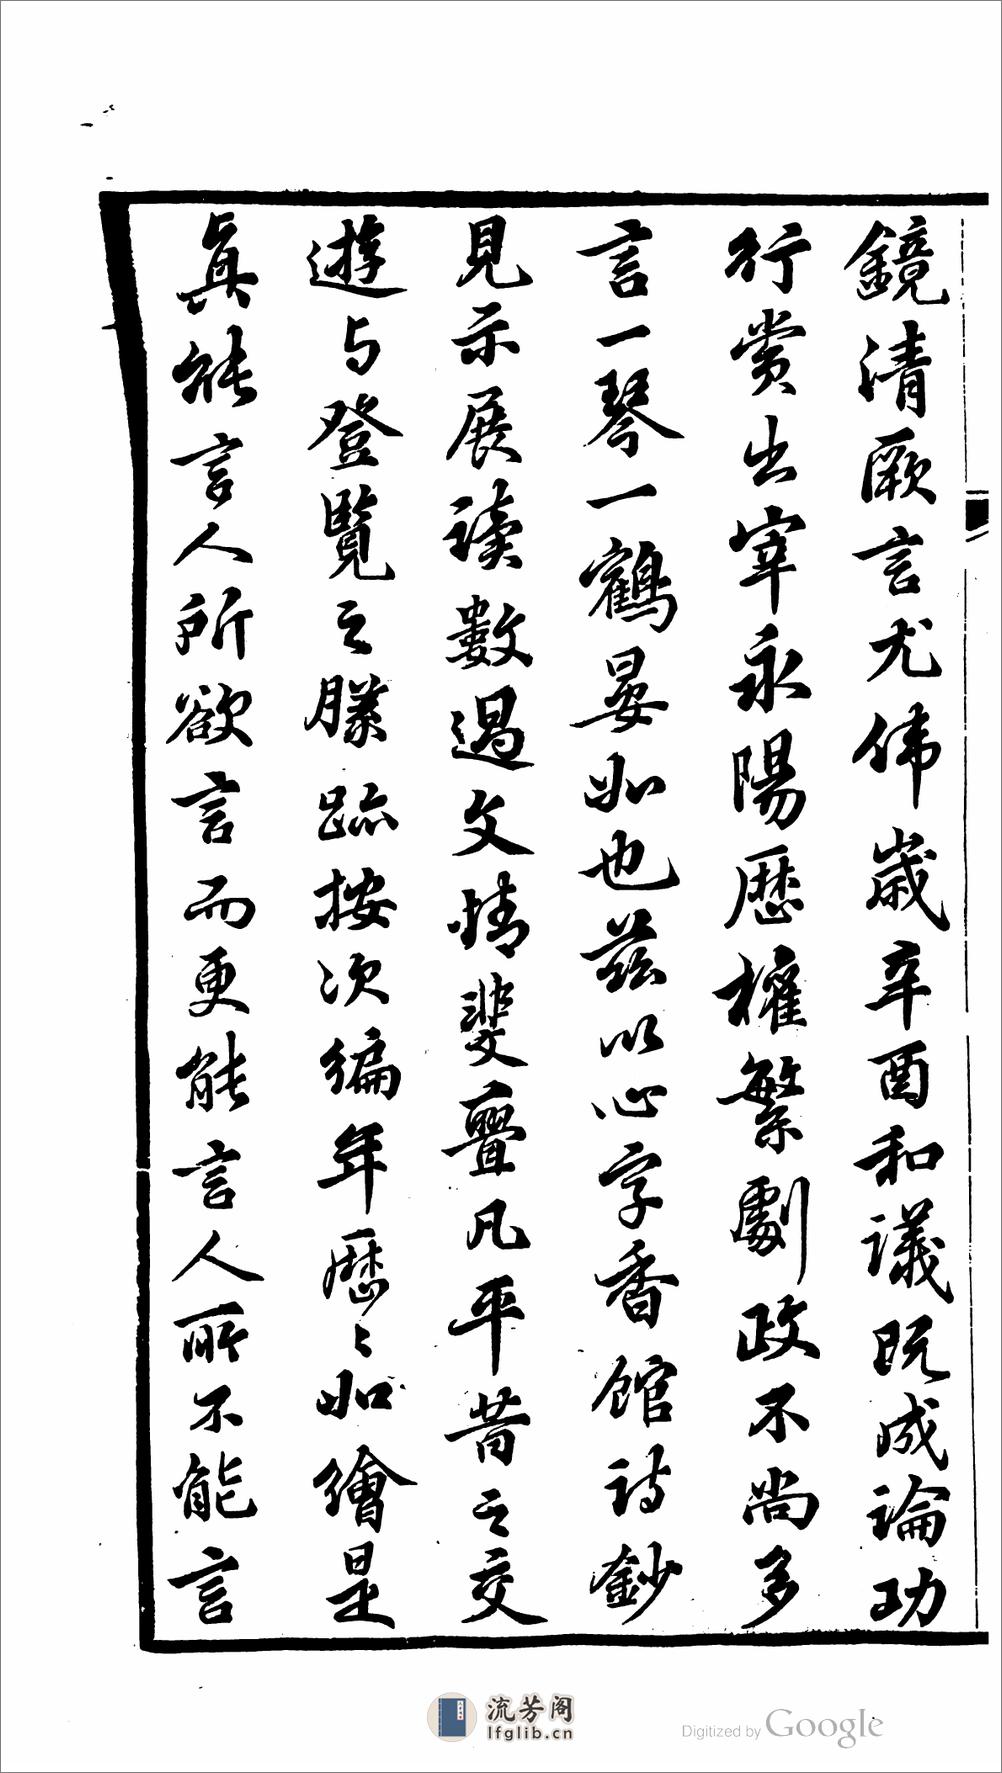 鏡清厥言尤偉歲辛酉和議既成論功
行賞出宰永陽歷權繁劇政不尚多
言一琴一鶴晏如也茲以心字香館詩鈔
見示展读數過文情斐亹凡平昔之交
遊与登覽之勝跡按次編年歷〻如繪是
真能言人所欲言而更能言人所不能言
流芳阁
lfglib.cn
Digitized by Google